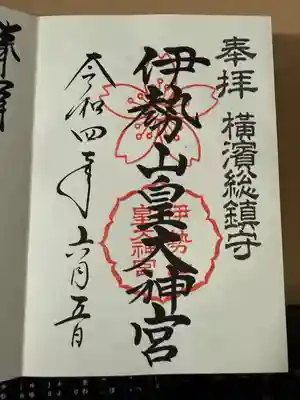 奉拝 横濱総鎮守
伊勢山皇大神宮
伊勢
皇大神宮
令和四年六月五日
奉拝